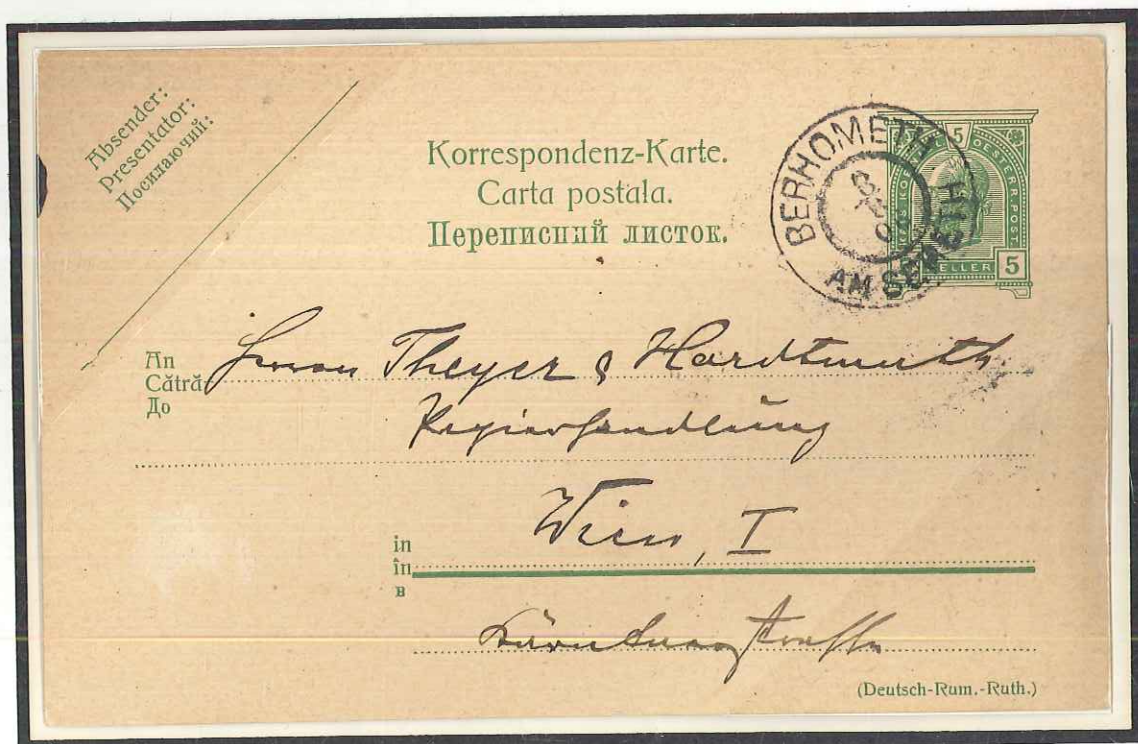 Absender:
Presentator:
Посилаючий:
Korrespondenz-Karte.
Carta postala.
Переписний листок.
BERHOMETH
AM SERETH
5
OESTERR. POST
HELLER 5
An
Cătră
До
Herren Theyer & Hardtmuth
Papierhandlung
in
în
в
Wien, I
Kärntnerstraße
(Deutsch-Rum.-Ruth.)